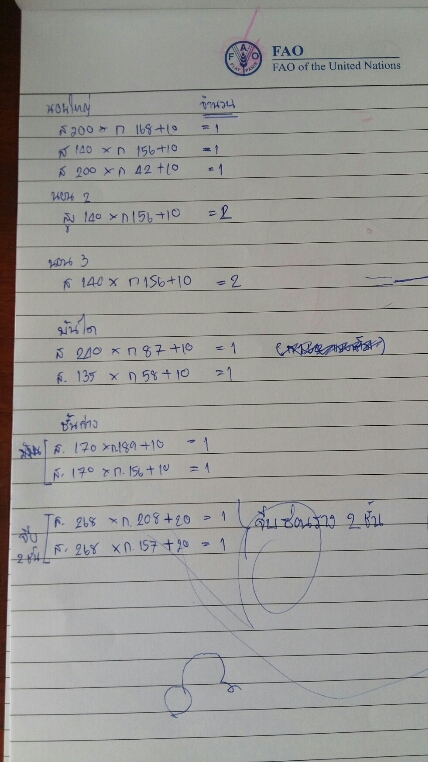 FAO
FAO of the United Nations
FAO
FIAT PANIS
นอนใหญ่ จำนวน
ส 200 × ก 168+10 = 1
ส 140 × ก 156+10 = 1
ส 200 × ก 42+10 = 1
นอน 2
ส 140 × ก 156+10 = 2
นอน 3
ส 140 × ก 156+10 = 2
บันได
ส 210 × ก 87+10 = 1
ส. 135 × ก 58+10 = 1
ชั้นล่าง
ส. 170 × ก.189+10 = 1
ส. 170 × ก.156+10 = 1
จีบ 2 ชั้น
ส. 268 × ก. 208+20 = 1
ส. 268 × ก. 157+20 = 1
จีบซ่อนราง 2 ชั้น